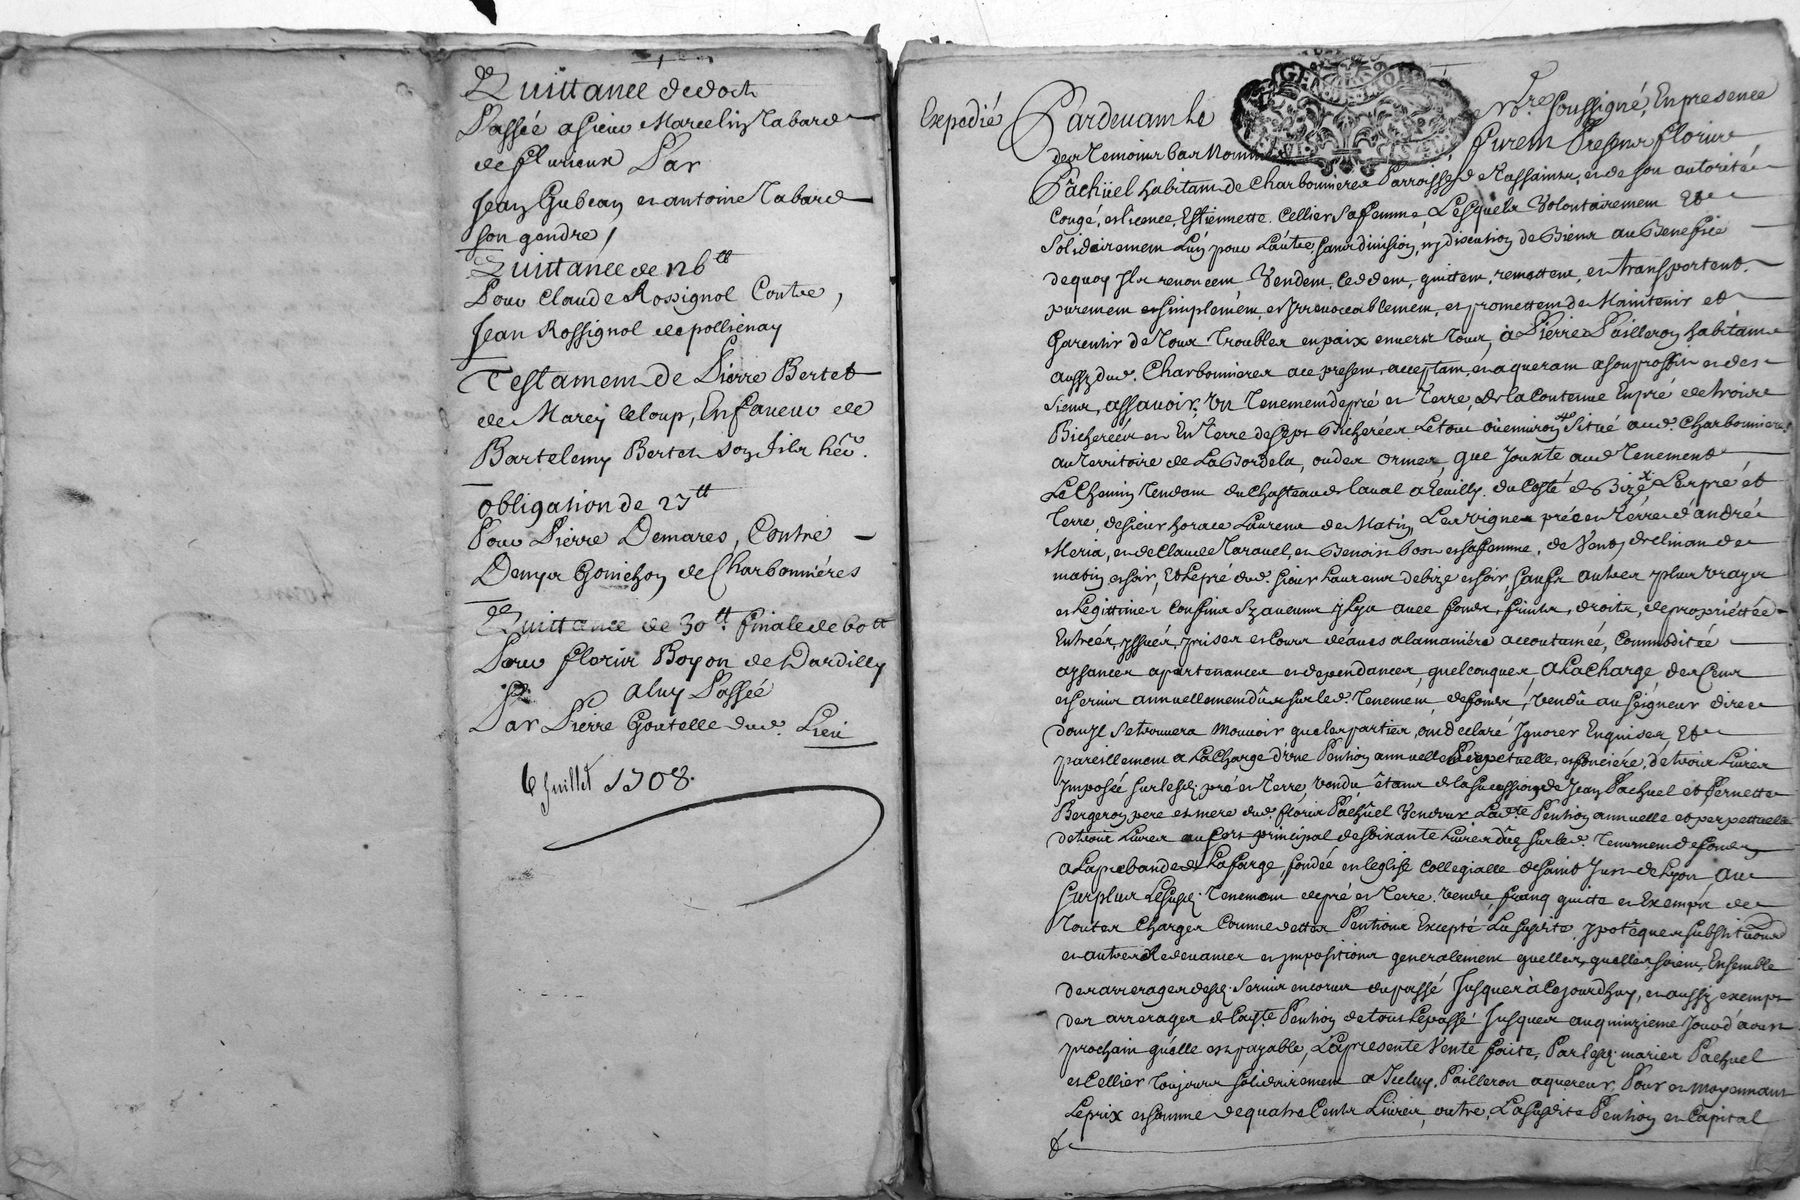 Quittance de doct
Passée a sieur Marcelin Tabard
de fleurieux Par
Jean Gubean et antoine Tabard
son gendre /
Quittance de 126tt
Pour Claude Rossignol Contre,
Jean Rossignol de pollienay
Testament de Pierre Bertet
de Marcy le loup, En faveur de
Bartelemy Bertet son fils hér.
obligation de 27tt
Pour Pierre Demares, Contre
Denys Gonichon de Charbonniéres
Quittance de 30tt. finale de 60tt
Pour floris Boyon de Dardilly
a luy Passée
Par Pierre Goutelle dud. Lieu
6 Juillet 1708.
Expedié
Pardevant le Nre soussigné, En presence
des Temoins bas Nommés furent Presens floris
Pachüel habitant de Charbonnieres Parroisse de Tassains, et de son autorité
Congé, et licence, Estiennette Cellier sa femme Lesquels Volontairement Et
Solidairement L'un pour L'autre sans division, ny discution de Biens au Benefice
de quoy Ils renoncent Vendent, Ceddent, quittent, remettent, et transportent
purement et simplement, et Irrevocablement, et promettent de Maintenir et
Garentir de Tous Troubles en paix envers Tous, à Pierre Pailleron habitant
aussy dud. Charbonnieres ace present, acceptant, et aquerant a son proffit et des
siens, assavoir, un Tenement de pré et Terre, de la Contenue En pré de trois
Bicherées et En Terre de sept Bicherées Le tout ou environ, Situé aud. Charbonnieres
au Territoire de La Bordela, ou des Ormes, que Jouxte aud Tenement
Le Chemin Tendant du Chasteau de Laval a Ecully du Costé de Bize, Les pré et
Terre, de sieur horace Laurens de Matin, Les vignes pré et Terre d'andré
Meria, et de Claude Taravel, et Benoist bost et sa femme, de Vent, declinant de
matin et soir, Et Le pré dud. sieur Laurens de bize et soir sauf autres plus vrays
et Legittimes Confins sy aucuns y Lya avec fonds, fruits, droits, de propriettée
Entrées, yssues, prises et Cours d'eaues a la maniére accoutumée, Commoditée
aysances apartenances et dependances quelconques, a La Charge des Cens
et servis annuellement dûs sur led. Tenement, de fonds, vendû au seigneur direct
dont Il se trouvera Mouvoir que les parties, ont declaré Ignorer Enquises, Et
pareillement a La Charge d'une Pention annuelle Perpetuelle, et fonciére, de trois Livres
Imposée sur lesd. pré et Terre vendu, étant de la succession de Jean Pachuel et Pernette
Bergeron, pere et mere dud. floris Pachüel Vendeur Lad.te Pention annuelle et perpettuelle
de trois Livres au Cors principal de soixante Livres dûe sur led. Tenement de fonds
a La prebande de La farge, fondée en l'eglise Collegialle de Saint Just de Lyon, au
surplus Lesusd. Tenement de pré et Terre, vendu, franq quitte et Exempt de
Toutes Charges Comme dettes Pentions Excepté La susdite, ypoteques substitutions
et autres Redevances et Impositions generalement quelles, quelles soient, Ensemble
des arrerages desd. Servis encourus du passé Jusques à Cejourdhuy, et aussy exempt
des arrerages de lad.te Pention de tous Le passé Jusques au quinzieme Jour d'aoust
prochain qu'elle est payable, La presente Vente faite, Par lesd. mariés Pachuel
et Cellier Toujours solidairement a Iceluy, Pailleron aquereur, Pour et moyennant
Le prix et somme de quatre Cents Livres, outre, La susdite Pention et Capital